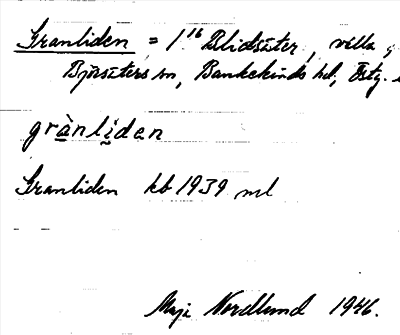 Granliden = 1¹⁶ Blidsäter, villa,
Bjärsäters sn, Bankekinds hd, Östg.
grànlìden
Granliden kb 1939 ml
Maja Nordlund 1946.